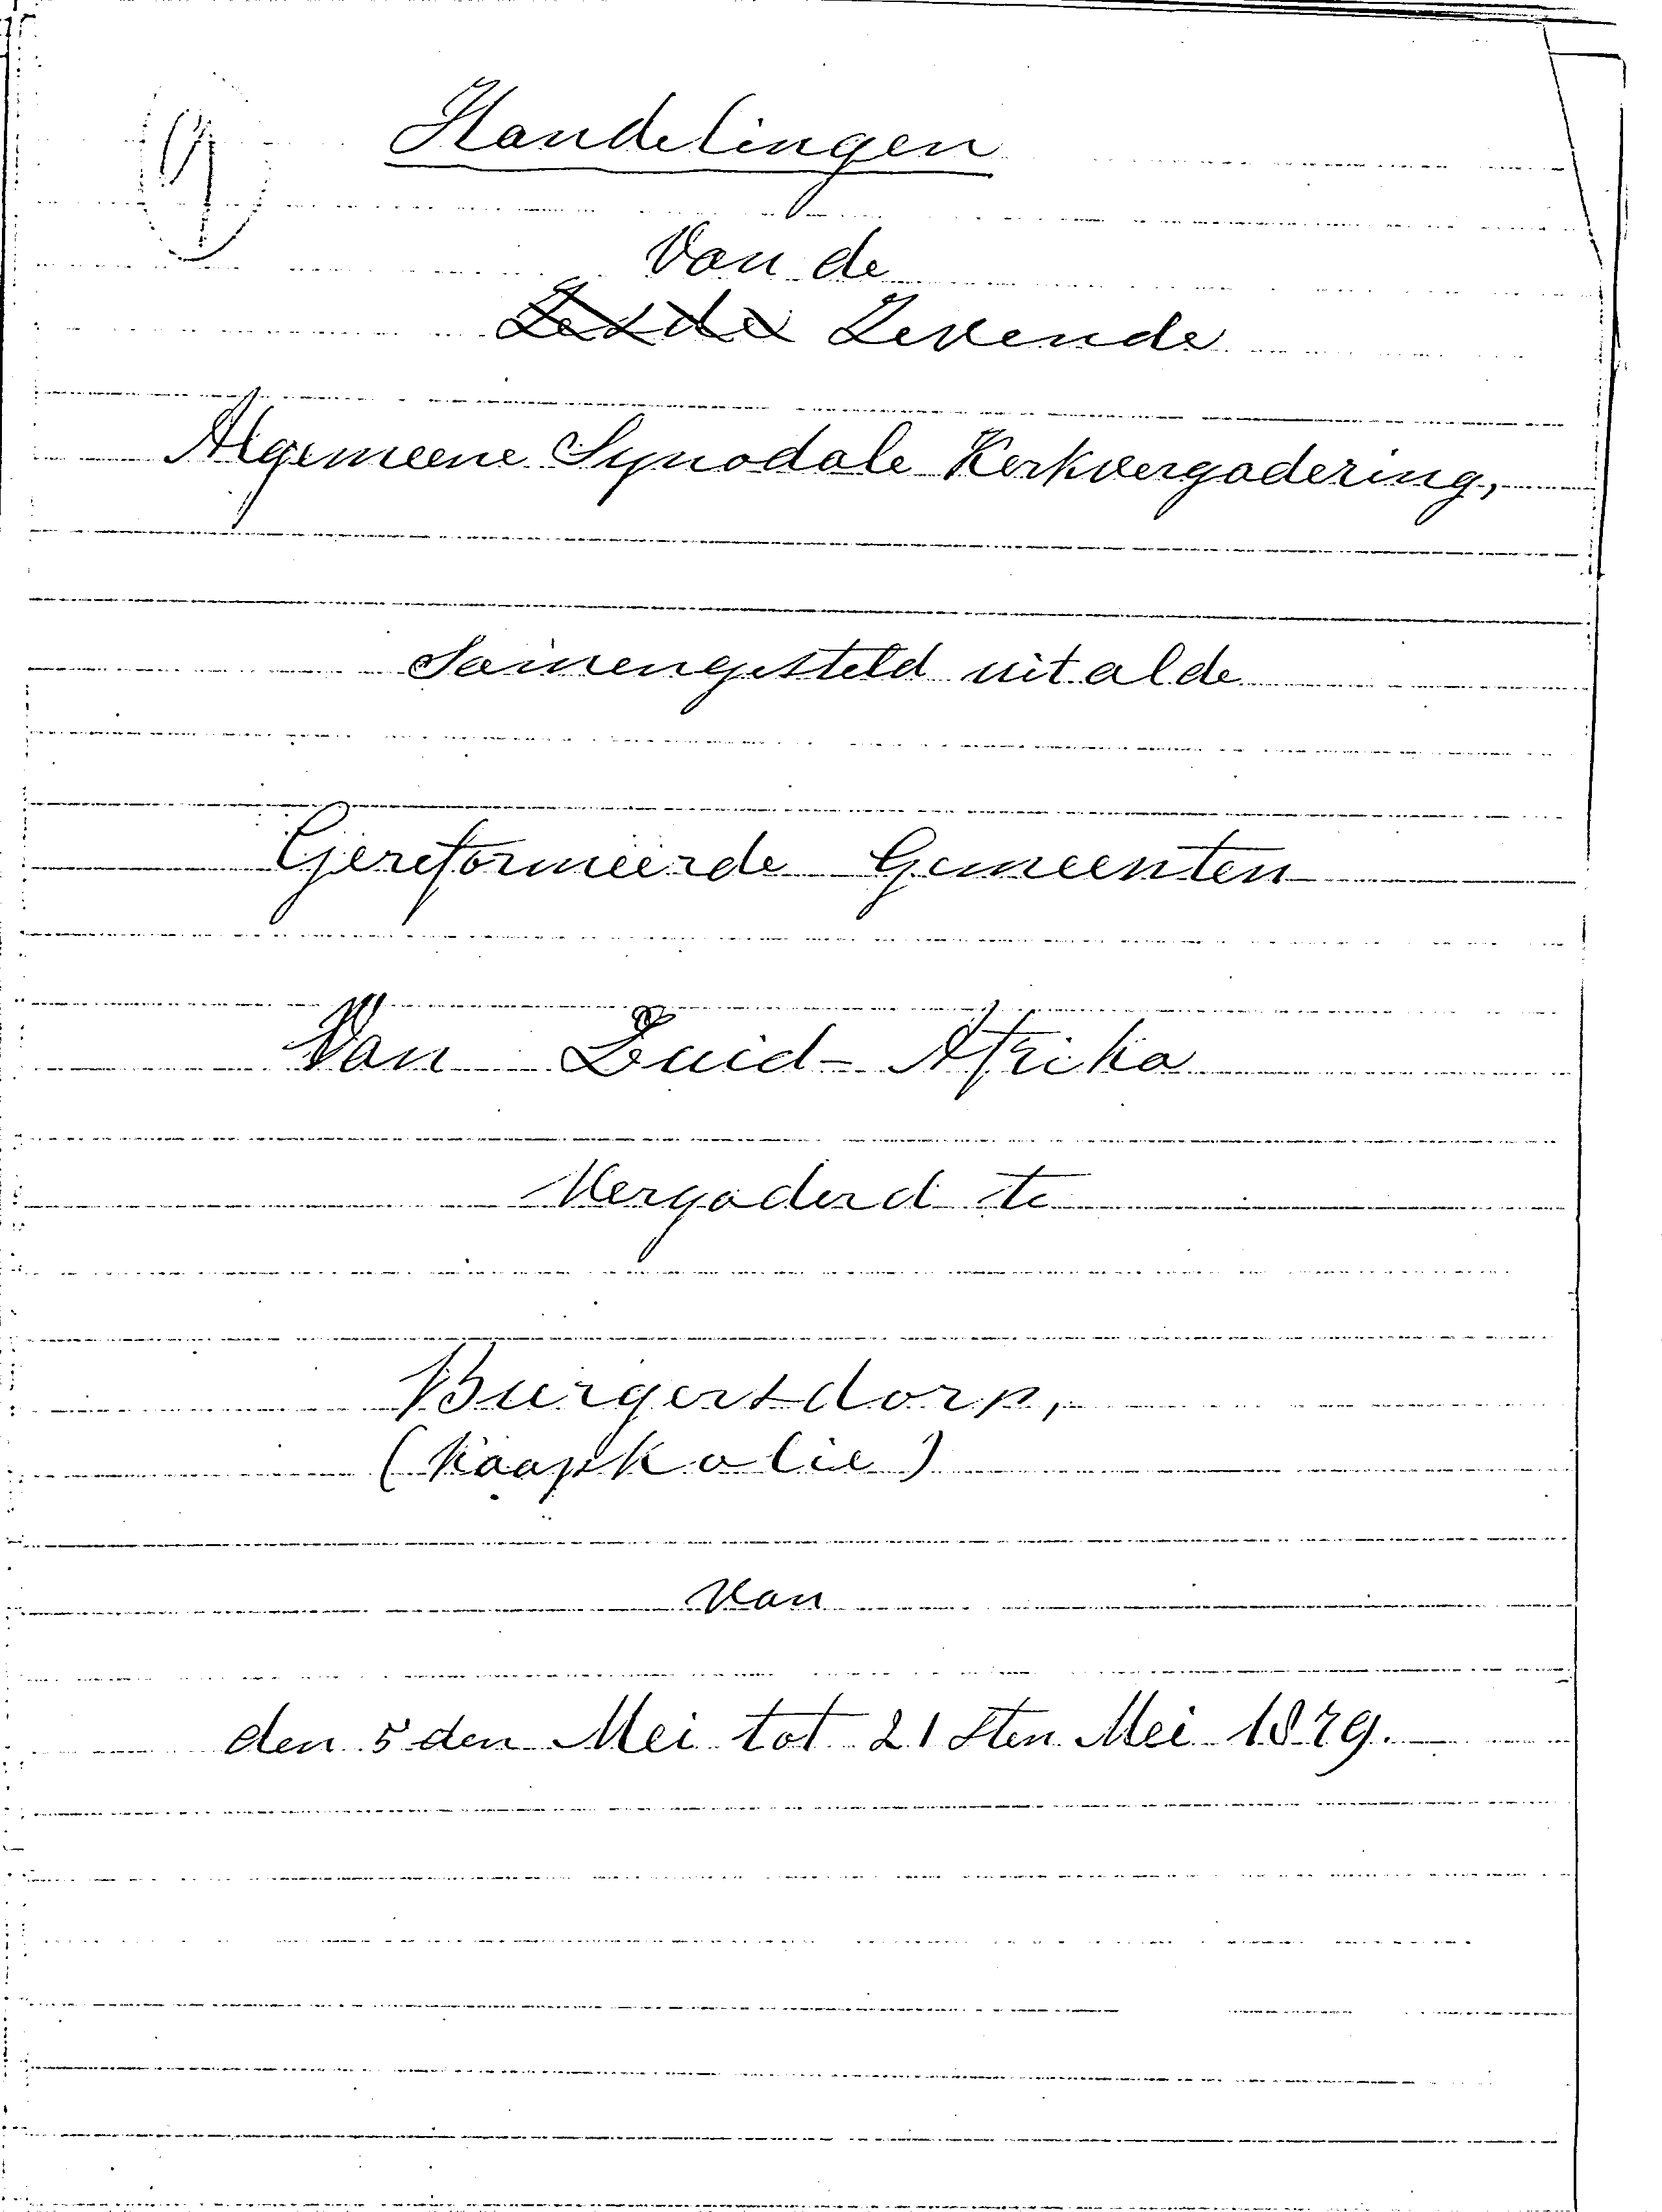 Handelingen
Van de
Zesde Zevende
Algemeene Synodale Kerkvergadering,
Samengesteld uit al de
Gereformeerde Gemeenten
Van Zuid-Afrika
Vergaderd te
Burgersdorp,
(Kaapkolie)
van
den 5 den Mei tot 21 sten Mei 1879.